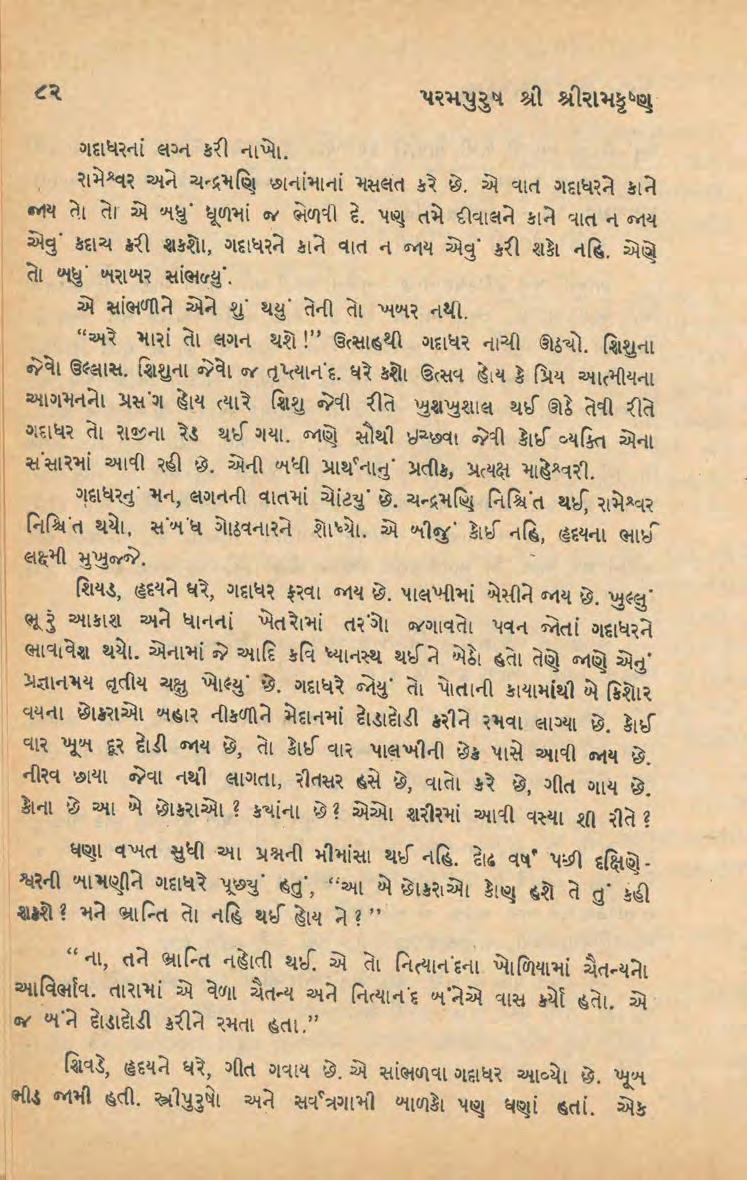 ૮૨ પરમપુરુષ શ્રી શ્રીરામકૃષ્ણ
ગદાધરનાં લગ્ન કરી નાખો.
રામેશ્વર અને ચન્દ્રમણિ છાનાંમાનાં મસલત કરે છે. એ વાત ગદાધરને કાને
જાય તો તો એ બધું ધૂળમાં જ ભેળવી દે. પણ તમે દીવાલને કાને વાત ન જાય
એવું કદાચ કરી શકશો, ગદાધરને કાને વાત ન જાય એવું કરી શકો નહિ. એણે
તો બધું બરાબર સાંભળ્યું.
એ સાંભળીને એને શું થયું તેની તો ખબર નથી.
“અરે મારાં તો લગન થશે !” ઉત્સાહથી ગદાધર નાચી ઊઠ્યો. શિશુના
જેવો ઉલ્લાસ. શિશુના જેવો જ તૃપ્ત્યાનંદ. ઘરે કશો ઉત્સવ હોય કે પ્રિય આત્મીયના
આગમનનો પ્રસંગ હોય ત્યારે શિશુ જેવી રીતે ખુશખુશાલ થઈ ઊઠે તેવી રીતે
ગદાધર તો રાજીના રેડ થઈ ગયા. જાણે સૌથી ઇચ્છવા જેવી કોઈ વ્યક્તિ એના
સંસારમાં આવી રહી છે. એની બધી પ્રાર્થનાનું પ્રતીક, પ્રત્યક્ષ માહેશ્વરી.
ગદાધરનું મન, લગનની વાતમાં ચોંટયું છે. ચન્દ્રમણિ નિશ્ચિંત થઈ, રામેશ્વર
નિશ્ચિંત થયો, સંબંધ ગોઠવનારને શોધ્યો. એ બીજું કોઈ નહિ, હૃદયના ભાઈ
લક્ષ્મી મુખુજ્જે.
શિયડ, હૃદયને ઘરે, ગદાધર ફરવા જાય છે. પાલખીમાં બેસીને જાય છે. ખુલ્લું
ભૂરું આકાશ અને ધાનનાં ખેતરોમાં તરંગો જગાવતો પવન જોતાં ગદાધરને
ભાવાવેશ થયો. એનામાં જે આદિ કવિ ધ્યાનસ્થ થઈને બેઠો હતો તેણે જાણે એનું
પ્રજ્ઞાનમય તૃતીય ચક્ષુ ખોલ્યું છે. ગદાધરે જોયું તો પોતાની કાયામાંથી બે કિશોર
વયના છોકરાઓ બહાર નીકળીને મેદાનમાં દોડાદોડી કરીને રમવા લાગ્યા છે. કોઈ
વાર ખૂબ દૂર દોડી જાય છે, તો કોઈ વાર પાલખીની છેક પાસે આવી જાય છે.
નીરવ છાયા જેવા નથી લાગતા, રીતસર હસે છે, વાતો કરે છે, ગીત ગાય છે.
કોના છે આ બે છોકરાઓ ? કયાંના છે ? એઓ શરીરમાં આવી વસ્યા શી રીતે ?
ઘણા વખત સુધી આ પ્રશ્નની મીમાંસા થઈ નહિ. દોઢ વર્ષ પછી દક્ષિણે-
શ્વરની બામણીને ગદાધરે પૂછ્યું હતું, “આ બે છોકરાઓ કોણ હશે તે તું કહી
શકશે ? મને ભ્રાન્તિ તો નહિ થઈ હોય ને ? ”
“ ના, તને ભ્રાન્તિ નહોતી થઈ. એ તો નિત્યાનંદના ખોળિયામાં ચૈતન્યનો
આવિર્ભાવ. તારામાં એ વેળા ચૈતન્ય અને નિત્યાનંદ બંનેએ વાસ કર્યો હતો. એ
જ બંને દોડાદોડી કરીને રમતા હતા.”
શિવડે, હૃદયને ઘરે, ગીત ગવાય છે. એ સાંભળવા ગદાધર આવ્યો છે. ખૂબ
ભીડ જામી હતી. સ્ત્રીપુરુષો અને સર્વત્રગામી બાળકો પણ ઘણાં હતાં. એક